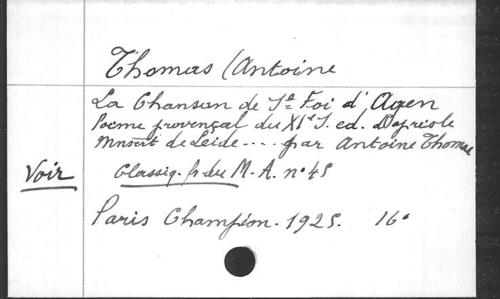 Thomas (Antoine
La Chanson de Ste Foi d'Agen
Poeme provençal du XIe S. ed. d'apres le
Mnscit de Leide .... par Antoine Thomas
Voir Classiq. fr. du M. A. n° 45
Paris Champion. 1925. 16°